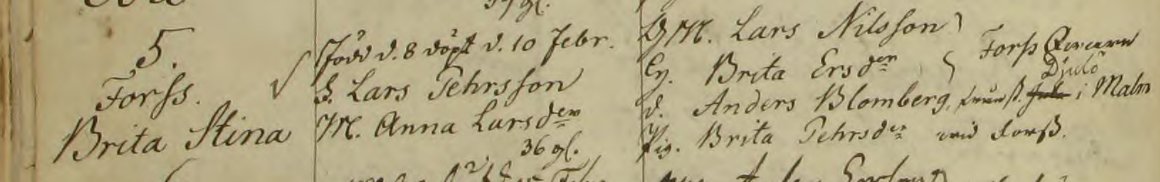 5.
Forss.
Brita Stina
Född d. 8 döpt d. 10 Febr.
F. Lars Pehrsson
M. Anna Larsder
36 gl.
GM. Lars Nilsson
Hy. Brita Ersder } Forss
D. Anders Blomberg, Djulö i Malm
Pig. Brita Pehrsder wid Forss.